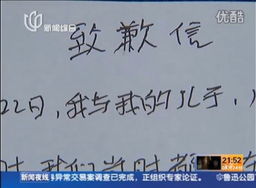 新闻综合
优酷
致歉信
22日,我与我的儿子,
时我们当时都
21:52
新闻夜线
异常交易案调查已完成,正组织专家论证。
@鲁迅公园